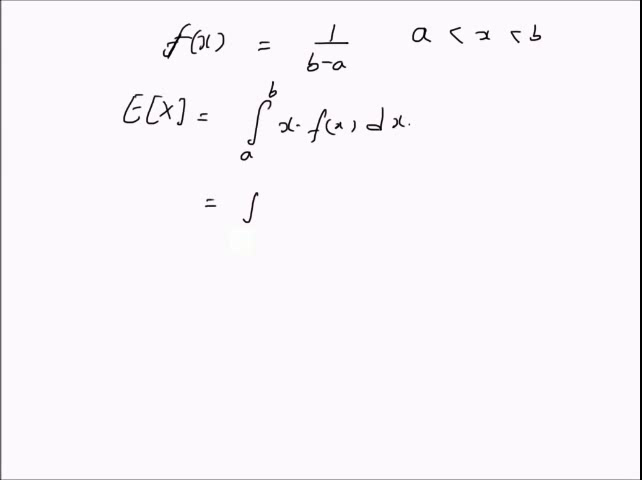 f(x) = 1/(b-a) a < x < b
E[X] = ∫_a^b x. f(x) dx.
= ∫